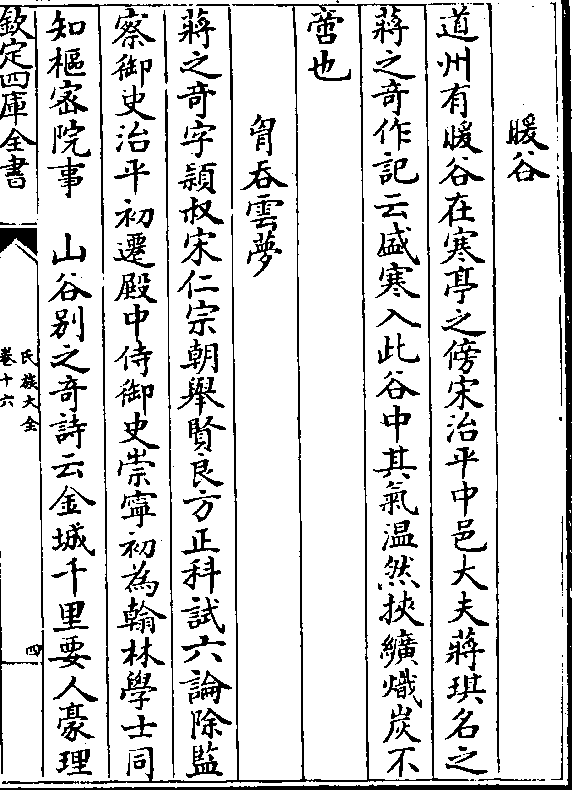 暖谷
道州有暖谷在寒亭之傍宋治平中邑大夫蔣琪名之
蔣之奇作記云盛寒入此谷中其氣温然挾纊熾炭不
啻也
胷吞雲夢
蔣之奇字頴叔宋仁宗朝舉賢良方正科試六論除監
察御史治平初遷殿中侍御史崇寧初為翰林學士同
知樞宻院事　山谷别之奇詩云金城千里要人豪理
欽定四庫全書
氏族大全
卷十六
四